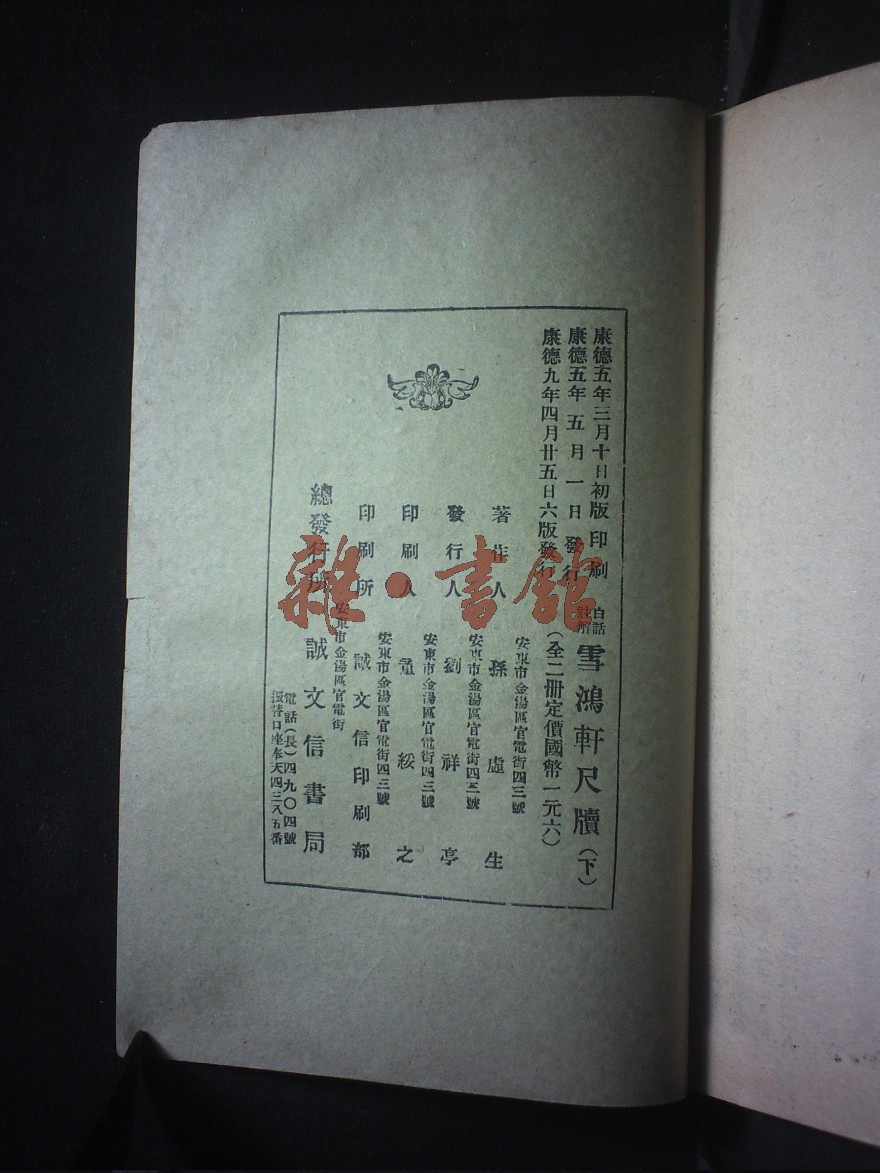 康德五年三月十日初版印刷
康德五年五月一日發行
康德九年四月廿五日六版發行
白話註解雪鴻軒尺牘(下)
(全二册定價國幣一元六)
安東市金湯區官電街四三號
著作人 孫虛生
安東市金湯區官電街四三號
發行人 劉祥亭
安東市金湯區官電街四三號
印刷人 董綏之
安東市金湯區官電街四三號
印刷所 誠文信印刷部
安東市金湯區官電街
總發行所 誠文信書局
電話(長)四九〇四號
振替口座奉天四三八五番
雜·書館